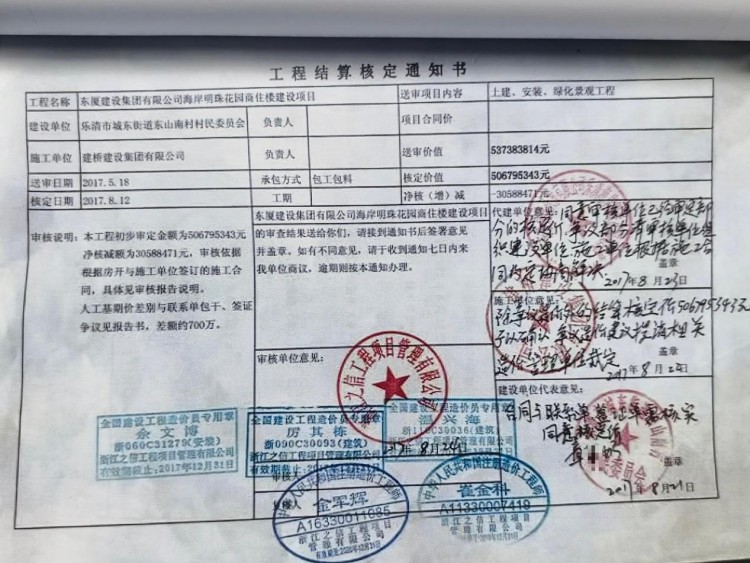 工程结算核定通知书
工程名称 东厦建设集团有限公司海岸明珠花园商住楼建设项目 送审项目内容 土建、安装、绿化景观工程
建设单位 乐清市城东街道东山南村村民委员会 负责人 项目合同价
施工单位 建桥建设集团有限公司 负责人 送审价值 537383814元
送审日期 2017.5.18 承包方式 包工包料 核定价值 506795343元
核定日期 2017.8.12 工期 净核（增）减 -30588471元
审核说明：本工程初步审定金额为506795343元
净核减额为30588471元，审核依据
根据房开与施工单位签订的施工合
同，具体见审核报告说明。
人工基期价差别与联系单包干、签证
争议见报告书，差额约700万。
东厦建设集团有限公司海岸明珠花园商住楼建设项目
的审查结果送给你们，请接到通知书后签署意见
并盖章。如有不同意见，请于收到通知七日内来
我单位商议，逾期则按本通知办理。
审核单位意见：
之信工程项目管理有限公司
2017年8月
审核人
复核人
代建单位意见：同意审核单位已给审定部
分的核定价，争议部分请审核单位组
织建设单位、施工单位根据施工合
同约定协商解决
盖章
2017年8月23日
施工单位意见：
除争议造价外的结算核定价506795343元
予以确认，争议造价建议提请
造价管理单位裁定
盖章
2017年8月24日
建设单位代表意见：
合同与联系单签证单惠核实
同意核定价
盖章
2017年8月21日
全国建设工程造价员专用章
余文博
浙060C31279(安装)
浙江之信工程项目管理有限公司
有效期截止:2017年12月31日
全国建设工程造价员专用章
房其栋
浙090C30093(建筑)
浙江之信工程项目管理有限公司
有效期截止:
全国建设工程造价员专用章
温兴海
C30036(建筑)
中华人民共和国注册造价工程师
金军辉
A16330011085
浙江之信工程项目
管理有限公司
中华人民共和国注册造价工程师
崔金科
A11330007419
浙江之信工程项目
管理有限公司